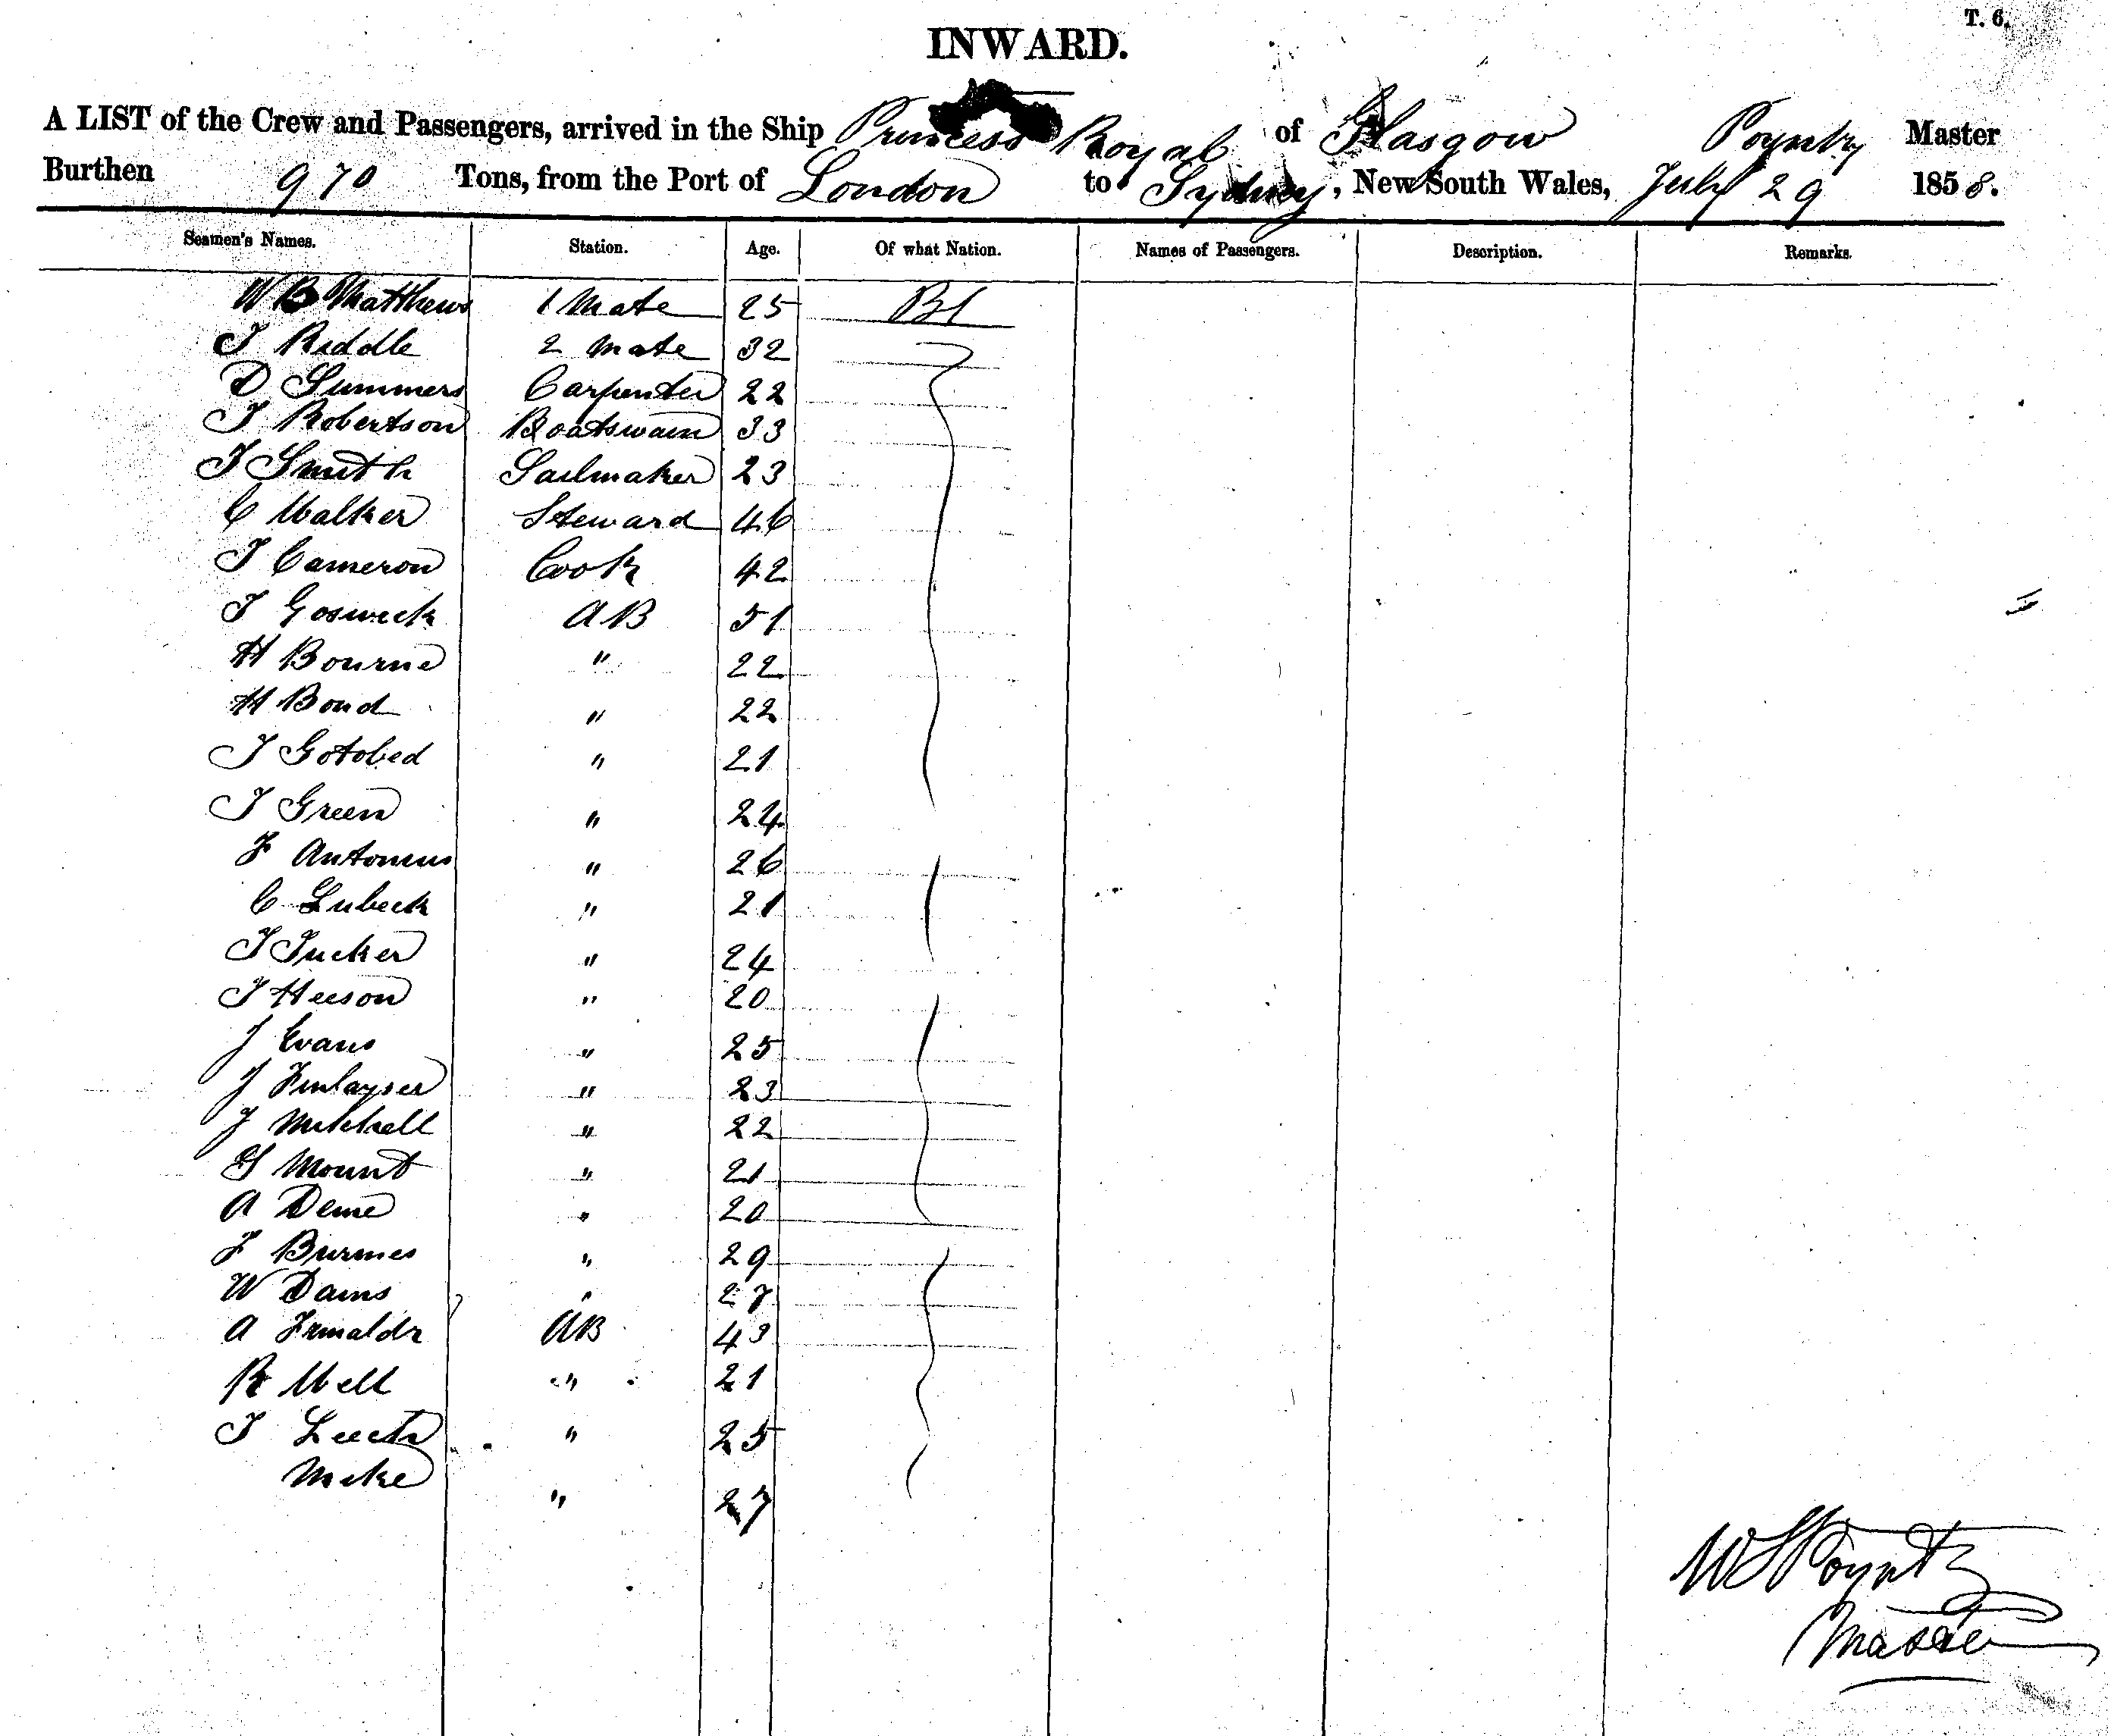 T. 6.
INWARD.
A LIST of the Crew and Passengers, arrived in the Ship Princess Royal of Glasgow Master
Burthen 970 Tons, from the Port of London to Sydney, New South Wales, July 29 1858.
Seamen's Names. Station. Age. Of what Nation. Names of Passengers. Description. Remarks.
W B Matthews 1 Mate 25
J Riddle 2 Mate 32
D Summers Carpenter 22
J Robertson Boatswain 33
J Smith Sailmaker 23
C Walker Steward 46
J Cameron Cook 42
J Goswick AB 51
H Bourne " 22
H Bond " 22
J Gotobed " 21
J Green " 24
F " 26
C Lubeck " 21
J Tucker " 24
J " 20
J Evans " 25
J " 23
J Mitchell " 22
G Mount " 21
A " 20
F " 29
W " 27
A AB 43
R " 21
J " 25
" 27
W Poyntz
Master